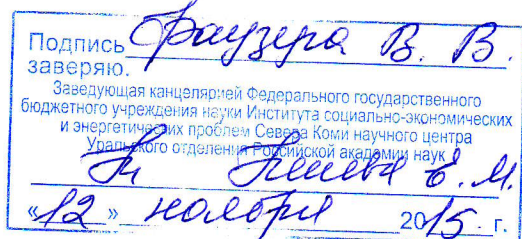 Подпись Фаузера В. В.
заверяю.
Заведующая канцелярией Федерального государственного
бюджетного учреждения науки Института социально-экономических
и энергетических проблем Севера Коми научного центра
Уральского отделения Российской академии наук
Е. М.
«12» ноября 2015 г.